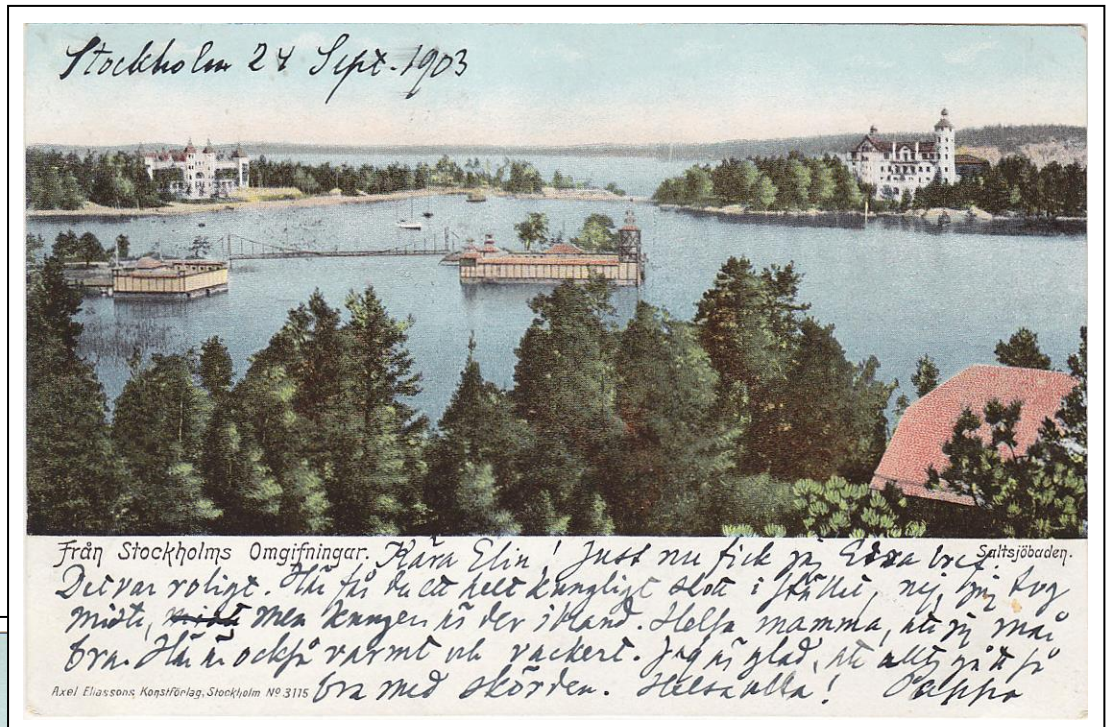 Stockholm 24 Sept. 1903
Från Stockholms Omgifningar.
Saltsjöbaden.
Kära Elin! Just nu fick jag Edra bref.
Det var roligt. Här får du ett helt kungligt slott i stället, nej, jag tog
miste, men kungen är der ibland. Helsa mamma, att jag mår
bra. Här är också varmt och vackert. Jag är glad, att allt gått så
bra med skörden. Helsa alla! Pappa
Axel Eliassons Konstförlag, Stockholm Nº 3115